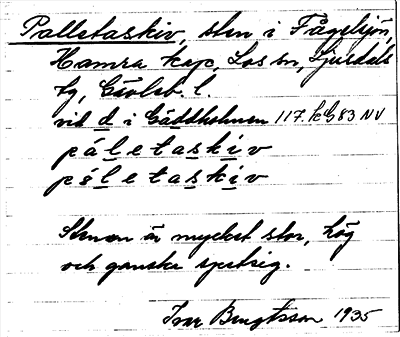 Palletaskiv, sten i Fågelsjön,
Hamra kap, Los sn, Ljusdals
tg, Gävleb. l.
vid d i Gäddholmen 117. kb 83 NV
pāletaskiv
påletaskiv
Stenen är mycket stor, hög
och ganska spetsig.
Ivar Bengtsson 1935